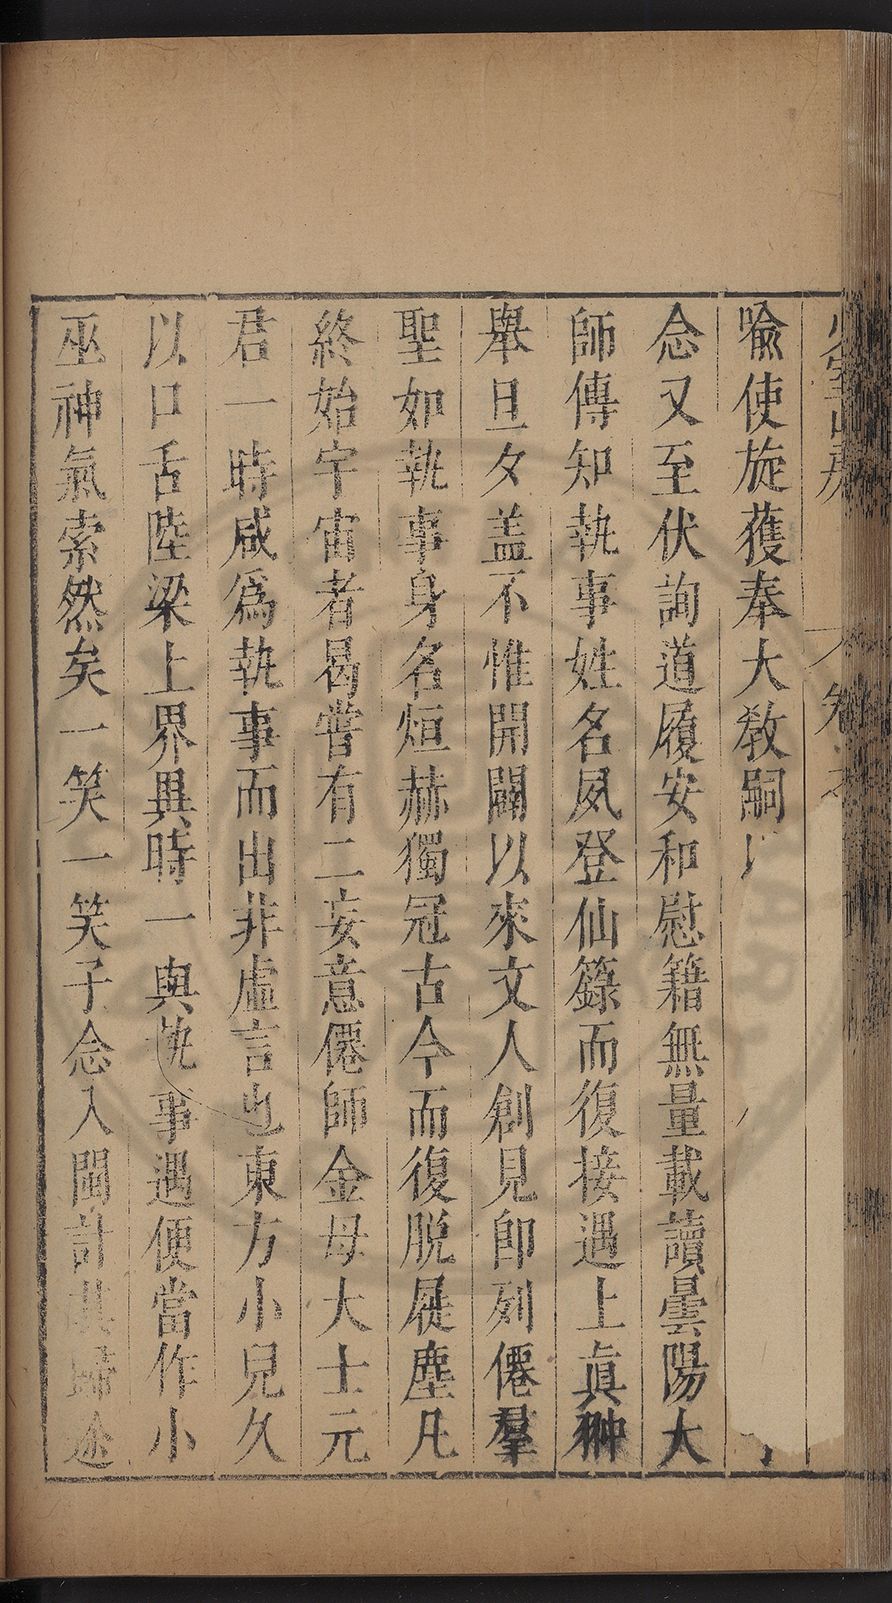 少室山房
喻使旋獲奉大敎嗣以
念又至伏詢道履安和慰籍無量載讀曇陽大
師傳知執事姓名夙登仙籙而復接遇上眞翀
舉旦夕盖不惟開闢以來文人創見卽列僊羣
聖如執事身名烜赫獨冠古今而復脫屣塵凡
終始宇宙者曷嘗有二妄意僊師金母大士元
君一時咸爲執事而出非虛言也東方小兒久
以口舌陸梁上界異時一與執事遇便當作小
巫神氣索然矣一笑一笑子念入閩計其歸途